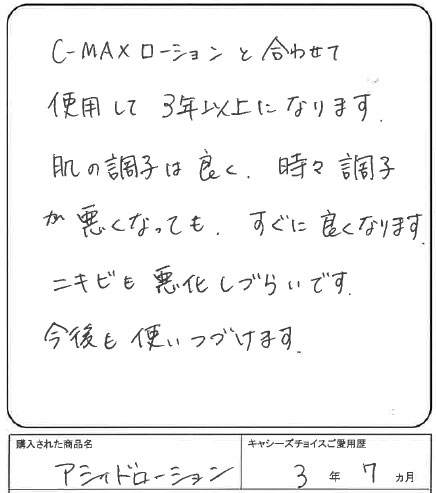 C-MAXローションと合わせて
使用して3年以上になります.
肌の調子は良く.時々調子
が悪くなっても.すぐに良くなります.
ニキビも悪化しづらいです.
今後も使いつづけます.
購入された商品名
アシィドローション
キャシーズチョイスご愛用歴
3年7ヵ月